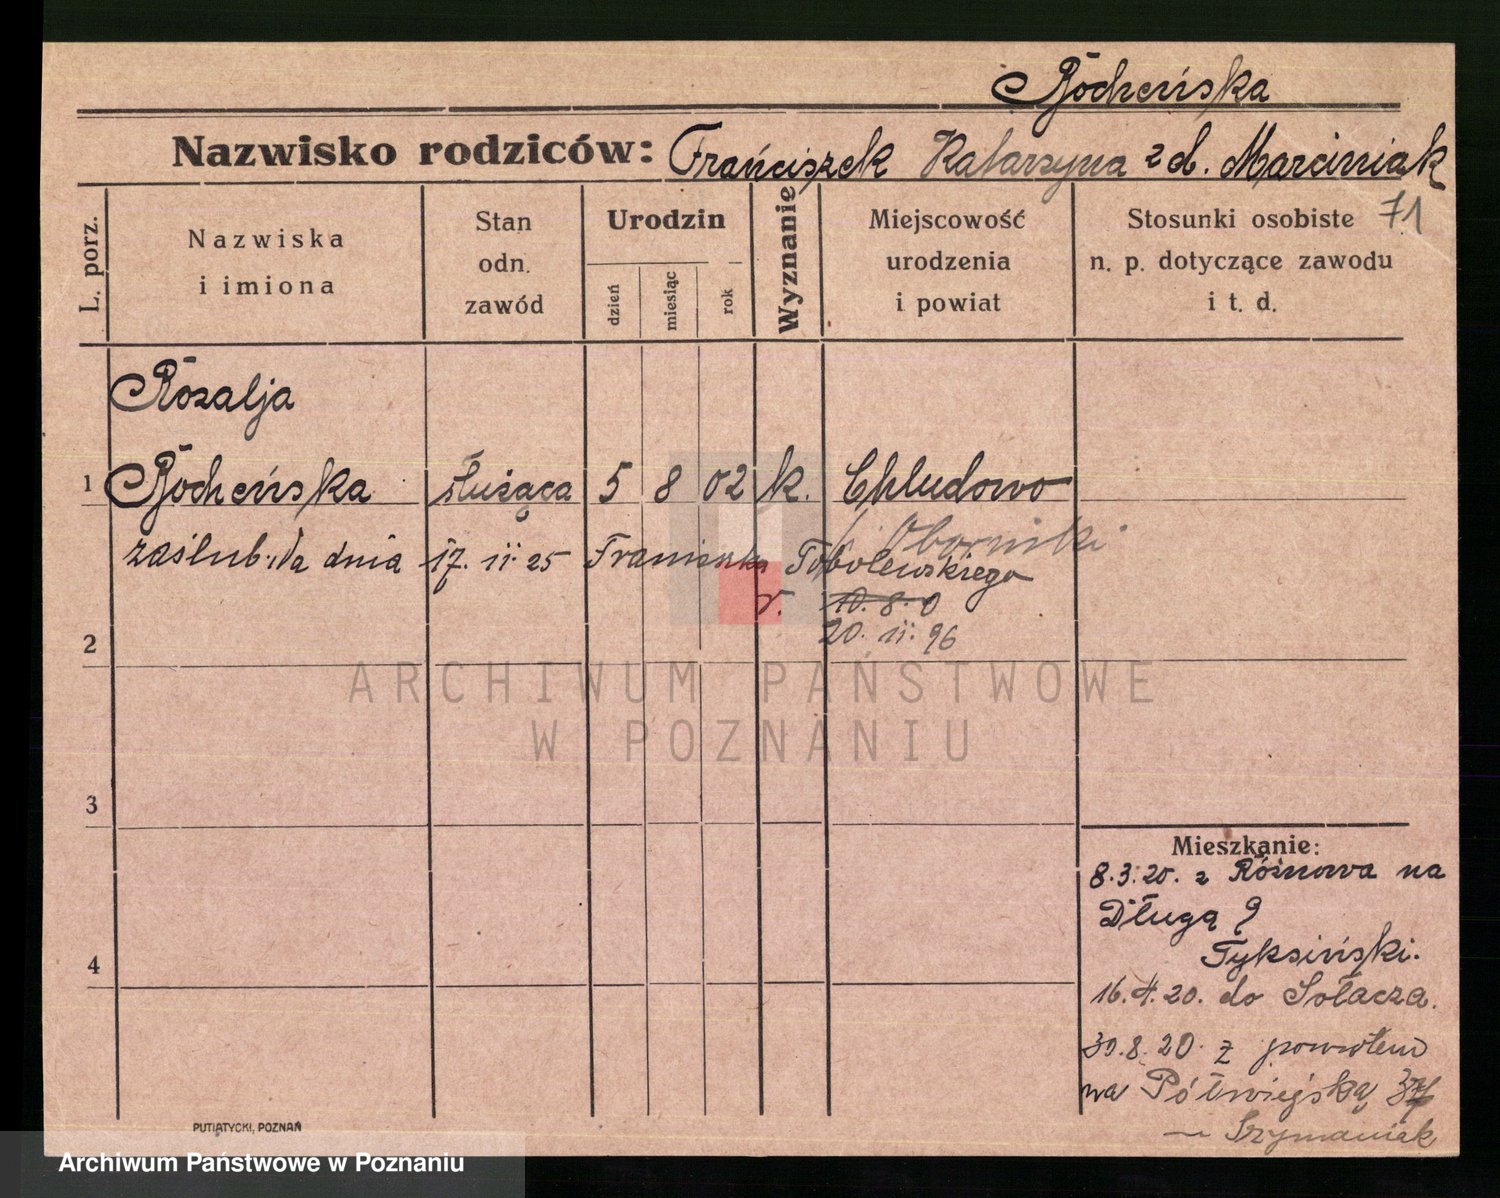 Rocheńska
Nazwisko rodziców: Franciszek Katarzyna z d. Marciniak
71
L. porz.
Nazwiska
i imiona
Stan
odn.
zawód
Urodzin
dzień
miesiąc
rok
Wyznanie
Miejscowość
urodzenia
i powiat
Stosunki osobiste
n. p. dotyczące zawodu
i t. d.
Rozalja
1 Rocheńska służąca 5 8 02 k. Chludowo
Oborniki
zaślub. dnia 17. 11. 25 Franciszka Tobolewskiego
r. 10. 8. 0
20. 11. 96
2
ARCHIWUM PAŃSTWOWE
W POZNANIU
3
Mieszkanie:
8.3.20. z Różnowa na
Długą 9
Tyksiński.
4
16.4.20. do Sołacza.
30.8.20. z powrotem
na Półwiejską
Szymaniak
PUTIATYCKI, POZNAŃ
Archiwum Państwowe w Poznaniu